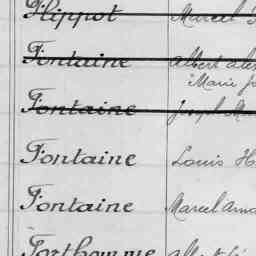 Flippot Marcel
Fontaine Albert
Marie
Fontaine Joseph
Fontaine Louis H
Fontaine Marcel
Forthomme